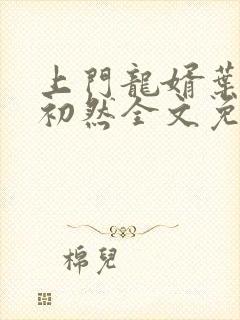 上門龍婿葉
初然全文免
棉兒